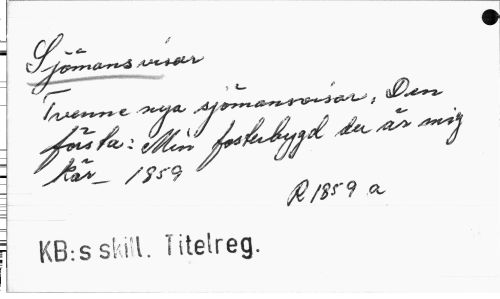 Sjömansvisor
Tvenne nya sjömansvisor, Den
första: Min fosterbygd du är mig
kär_ 1859
R 1859 a
KB:s skill. Titelreg.